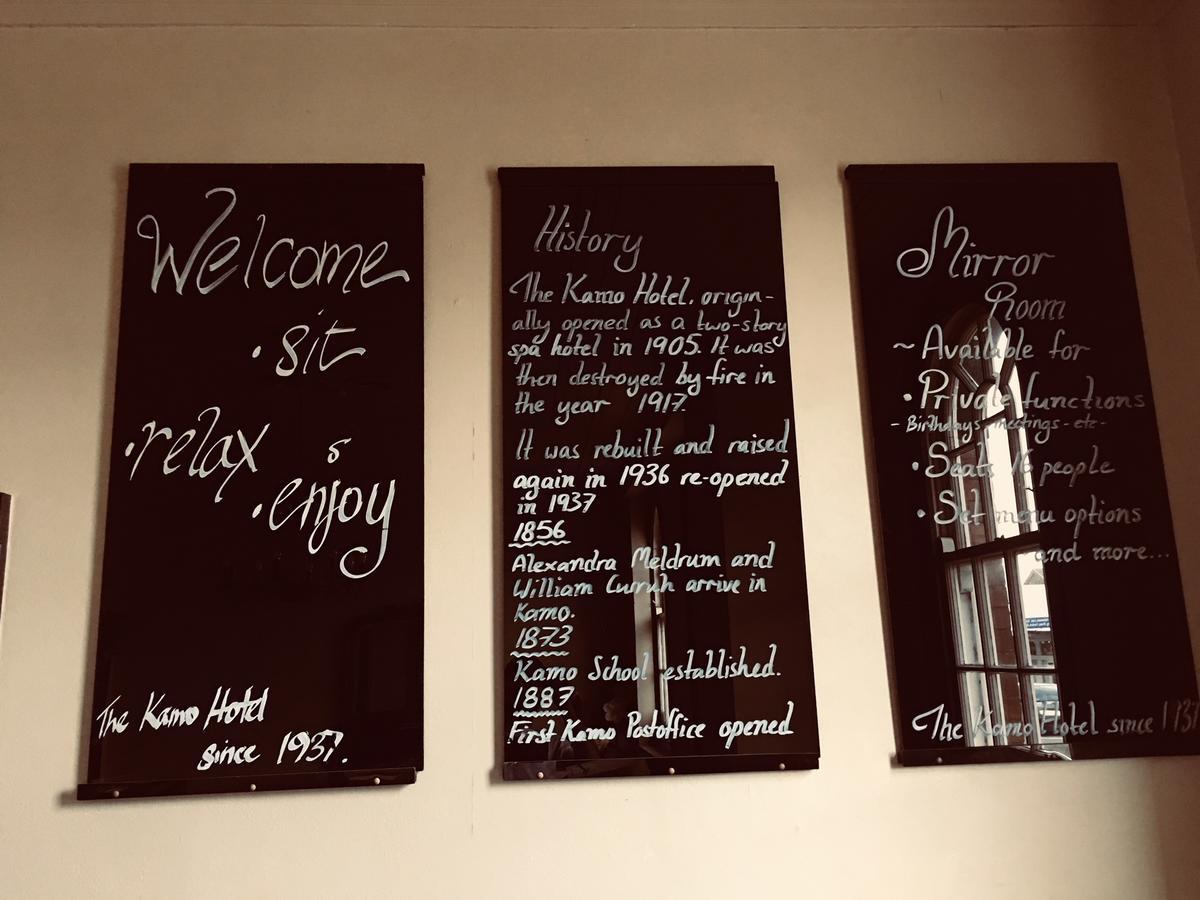 Welcome
· sit
· relax s
· enjoy
The Kamo Hotel
since 1937.
History
The Kamo Hotel, origin-
ally opened as a two-story
spa hotel in 1905. It was
then destroyed by fire in
the year 1917.
It was rebuilt and raised
again in 1936 re-opened
in 1937
1856
Alexandra Meldrum and
William Curruh arrive in
Kamo.
1873
Kamo School established.
1887
First Kamo Postoffice opened
Mirror
Room
~ Available for
· Private functions
- Birthdays - meetings - etc -
· Seats 16 people
· Set menu options
and more...
The Kamo Hotel since